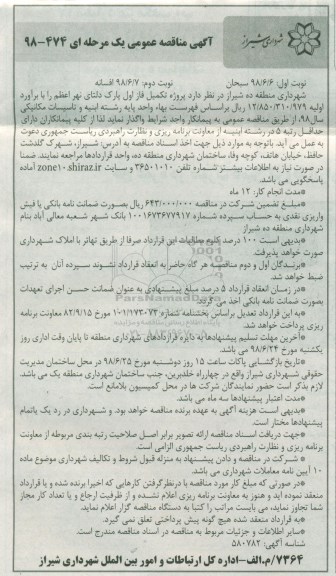 شهرداری شیراز
آگهی مناقصه عمومی یک مرحله ای ۴۷۴-۹۸
نوبت اول: ۹۸/۶/۶ سبحان نوبت دوم: ۹۸/۶/۷ افسانه
شهرداری منطقه ده شیراز در نظر دارد پروژه تکمیل فاز اول پارک دلتای نهر اعظم را با برآورد
اولیه ۱۲/۸۵۰/۳۱۰/۹۷۹ ریال براساس فهرست بهاء واحد پایه رشته ابنیه و تاسیسات مکانیکی
سال ۹۸، از طریق مناقصه عمومی به پیمانکار واجد شرایط واگذار نماید لذا از کلیه پیمانکاران دارای
حداقل رتبه ۵ در رشته ابنیه از معاونت برنامه ریزی و نظارت راهبردی ریاست جمهوری دعوت
به عمل می آید باتوجه به موارد ذیل جهت اخذ اسناد مناقصه به آدرس: شیراز، شهرک گلدشت
حافظ، خیابان هاتف، کوچه وفا، ساختمان شهرداری منطقه ده، واحد قراردادها مراجعه نمایند. ضمنا
در صورت نیاز به اطلاعات بیشتر شماره تلفن ۳۶۵۰۱۰۱۰ و سایت zone10.shiraz.ir آماده
پاسخگویی می باشد.
*مدت انجام کار: ۱۲ ماه
*مبلغ تضمین شرکت در مناقصه ۶۴۳/۰۰۰/۰۰۰ ریال بصورت ضمانت نامه بانکی یا فیش
واریزی نقدی به حساب سپرده شماره ۱۰۰۱۶۷۳۶۷۷۹۱۷ بانک شهر شعبه معالی آباد بنام
شهرداری منطقه ده شیراز
*بدیهی است ۱۰۰ درصد کلیه مطالبات این قرارداد صرفا از طریق تهاتر با املاک شهرداری
صورت خواهد پذیرفت.
*برندگان اول و دوم مناقصه هر گاه حاضر به انعقاد قرارداد نشوند سپرده آنان به ترتیب
ضبط خواهد شد.
*در زمان انعقاد قرارداد ۵ درصد مبلغ پیشنهادی به عنوان ضمانت حسن اجرای تعهدات
بصورت ضمانت نامه بانکی اخذ می گردد.
*به این قرارداد تعدیل براساس بخشنامه شماره ۱۰۱/۱۷۳۰۷۳ مورخ ۸۲/۹/۱۵ معاونت برنامه
ریزی پرداخت خواهد شد.
*آخرین مهلت تسلیم پیشنهادها به دایره قراردادهای شهرداری منطقه تا پایان وقت اداری روز
یکشنبه مورخ ۹۸/۶/۲۴ می باشد.
*تاریخ بازگشایی پاکات ساعت ۱۵ روز دوشنبه مورخ ۹۸/۶/۲۵ در محل ساختمان مدیریت
حقوقی شهرداری شیراز واقع در چهارراه خلدبرین، جنب ساختمان شهرداری منطقه یک می باشد.
لازم بذکر است حضور نمایندگان شرکت ها در محل کمیسیون بلامانع است.
*مدت اعتبار پیشنهادها سه ماه می باشد.
*بدیهی است هزینه آگهی به عهده برنده مناقصه خواهد بود. و شهرداری در رد یک یاتمام
پیشنهادها مختار است.
*جهت دریافت اسناد مناقصه ارائه تصویر برابر اصل صلاحیت رتبه بندی مربوطه از معاونت
برنامه ریزی و نظارت راهبردی ریاست جمهوری الزامی است.
*شرکت در مناقصه و دادن پیشنهاد به منزله قبول شروط و تکالیف شهرداری موضوع ماده
۱۰ آیین نامه معاملات شهرداری می باشد.
*در صورتی که مبلغ کار مورد مناقصه با درنظر گرفتن کارهایی که اخیرا برنده شده و یا قرارداد
منعقد نموده اید و هنوز به معاونت برنامه ریزی اعلام نشده و از ظرفیت ارجاع و یا تعداد کار مجاز
شما تجاوز نماید، می بایست مراتب را کتبا به دستگاه مناقصه گزار اعلام نماید.
*به قرارداد منعقد شده هیچ گونه پیش پرداختی تعلق نمی گیرد.
*سایر اطلاعات و جزئیات مربوط به مناقصه در اسناد مناقصه مندرج است.
شناسه آگهی: ۵۸۰۷۸۲
۷۳۶۴/م.الف-اداره کل ارتباطات و امور بین الملل شهرداری شیراز